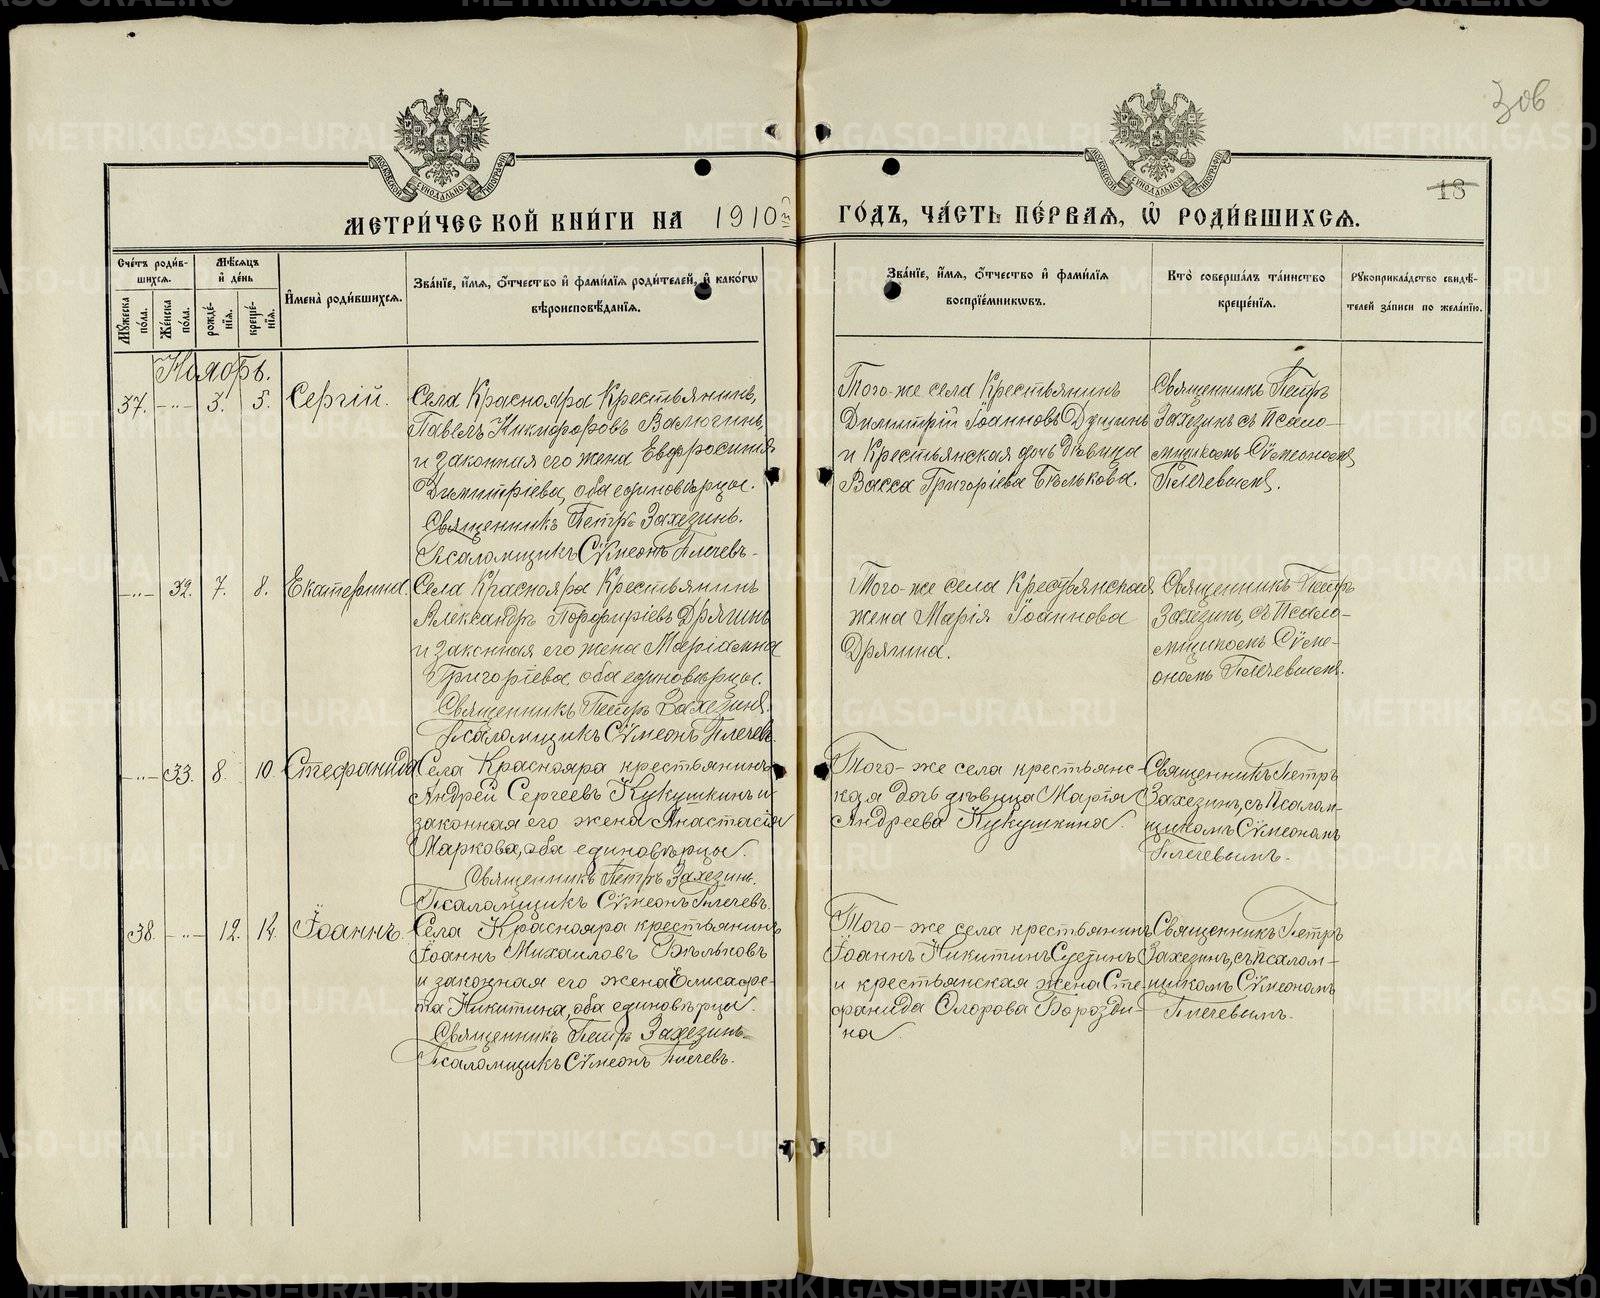 METRIKI.GASO-URAL.RU
306
18
МОСКОВСКОЙ СѴНОДАЛЬНОЙ ТИПОГРАФІИ
МЕТРИ́ЧЕСКОЙ КНИ́ГИ НА 1910й ГО́ДЪ, ЧА́СТЬ ПЕ́РВАѦ, Ѡ҆ РОДИ́ВШИХСѦ.
Сче́тъ роди́вшихсѧ.
Мꙋ́жеска по́ла.
Же́нска по́ла.
Мѣ́сѧцъ и҆ де́нь
рожде́нїѧ.
креще́нїѧ.
И҆мена̀ роди́вшихсѧ.
Зва́нїе, и҆́мѧ, ѻ҆́тчество и҆ фами́лїѧ роди́телей, и҆ како́гѡ
вѣроисповѣ́данїѧ.
Зва́нїе, и҆́мѧ, ѻ҆́тчество и҆ фами́лїѧ
воспрїе́мникѡвъ.
Кто̀ соверша́лъ та́инство
креще́нїѧ.
Рꙋкоприкла́дство свидѣ́-
телей за́писи по жела́нїю.
Ноябрь.
37. -"- 3. 5. Сергій.
Села Краснояра Крестьянинъ,
Павелъ Никифоровъ Валюгинъ,
и законная его жена Евфросинія
Димитріева, оба единовѣрцы.
Священникъ Петръ Захезинъ.
Псаломщикъ Сѷмеонъ Плечевъ.
Того-же села Крестьянинъ
Димитрій Іоанновъ Душинъ
и Крестьянская дочь Дѣвица
Васса Григоріева Бѣлькова.
Священникъ Петръ
Захезинъ съ Псало-
мщикомъ Сѷмеономъ
Плечевымъ.
-"- 32. 7. 8. Екатерина.
Села Краснояра Крестьянинъ
Александръ Порфиріевъ Дрягинъ
и законная его жена Маріамна
Григоріева оба единовѣрцы.
Священникъ Петръ Захезинъ.
Псаломщикъ Сѷмеонъ Плечевъ.
Того-же села Крестьянская
жена Марія Іоаннова
Дрягина.
Священникъ Петръ
Захезинъ, съ Псало-
мщикомъ Сѷме-
ономъ Плечевымъ.
-"- 33. 8. 10. Стефанида
Села Краснояра крестьянинъ
Андрей Сергеевъ Кукушкинъ и
законная его жена Анастасія
Маркова, оба единовѣрцы.
Священникъ Петръ Захезинъ.
Псаломщикъ Сѷмеонъ Плечевъ.
Того-же села крестьянс-
кая дочь дѣвица Марія
Андреева Кукушкина.
Священникъ Петръ
Захезинъ, съ Псалом-
щикомъ Сѷмеономъ
Плечевымъ.
38. -"- 12. 14. Іоаннъ.
Села Краснояра крестьянинъ
Іоаннъ Михаиловъ Бѣльковъ
и законная его жена Елисаве-
та Никитина, оба единовѣрцы.
Священникъ Петръ Захезинъ.
Псаломщикъ Сѷмеонъ Плечевъ.
Того-же села крестьянинъ
Іоаннъ Никитинъ
и крестьянская жена Сте-
фанида Егорова Борозди-
на
Священникъ Петръ
Захезинъ, съ Псалом-
щикомъ Сѷмеономъ
Плечевымъ.